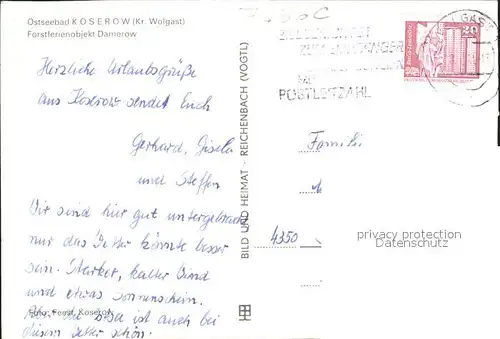 Ostseebad KOSEROW (Kr. Wolgast)
Forstferienobjekt Damerow
Herzliche Urlaubsgrüße
aus Koserow sendet Euch
Gerhard, Gisela
und Steffen
Wir sind hier gut untergebracht
nur das Wetter könnte besser
sein. Starker, kalter Wind
und etwas Sonnenschein.
Foto: Ferrd, Koserow
Aber die See ist auch bei
diesem Wetter schön.
BILD UND HEIMAT · REICHENBACH (VOGTL)
POSTLEITZAHL
GAST
20
Familie
4350
privacy protection
Datenschutz